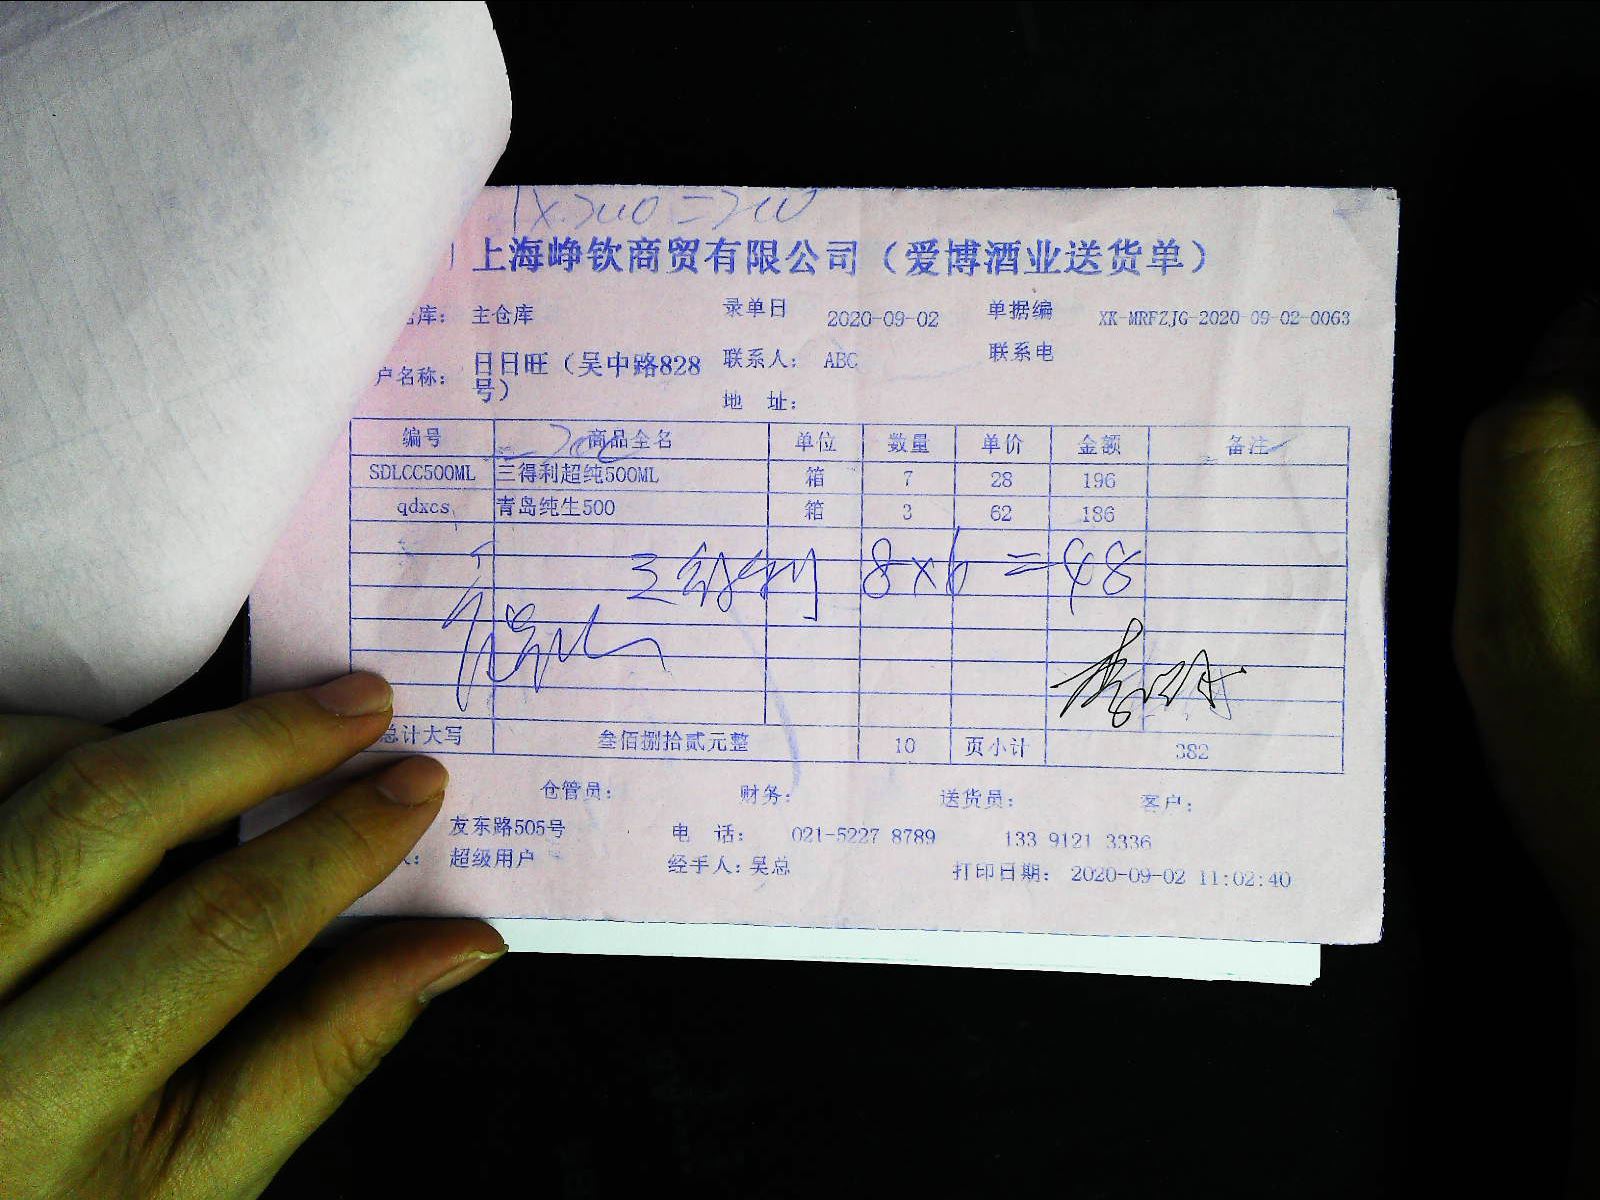 1×200=200
上海峥钦商贸有限公司（爱博酒业送货单）
库： 主仓库 录单日 2020-09-02 单据编 XK-MRFZJG-2020-09-02-0063
户名称： 日日旺（吴中路828号） 联系人： ABC 联系电
地 址：
编号 商品全名 单位 数量 单价 金额 备注
SDLCC500ML 三得利超纯500ML 箱 7 28 196
qdxcs 青岛纯生500 箱 3 62 186
三得利 8×6=48
总计大写 叁佰捌拾贰元整 10 页小计 382
仓管员： 财务： 送货员： 客户：
友东路505号 电 话： 021-5227 8789 133 9121 3336
人： 超级用户 经手人：吴总 打印日期： 2020-09-02 11:02:40